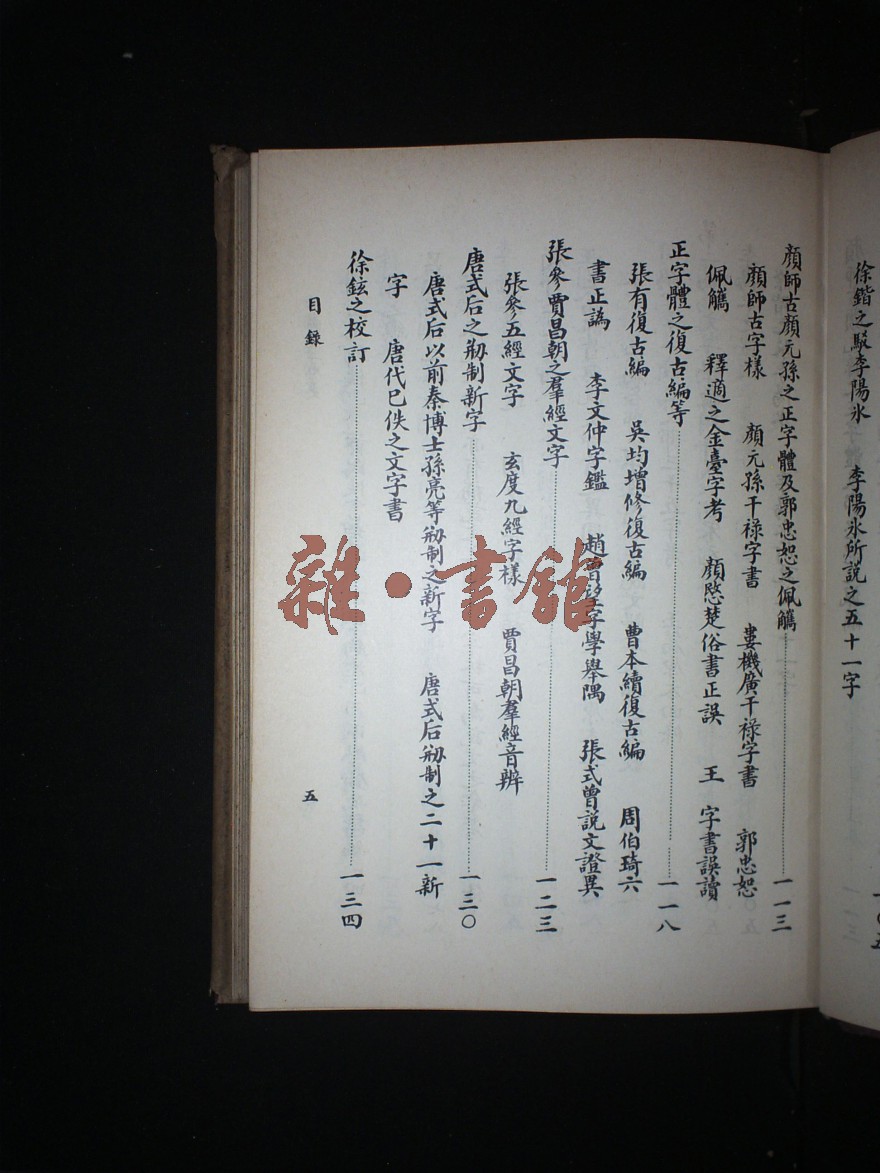 徐鍇之駁李陽氷　李陽氷所説之五十一字
顏師古顏元孫之正字體及郭忠恕之佩觽……一一三
顏師古字樣　顏元孫干祿字書　婁機廣干祿字書　郭忠恕
佩觽　釋適之金臺字考　顏愍楚俗書正誤　王　字書誤讀
正字體之復古編等……一一八
張有復古編　吳均增修復古編　曹本續復古編　周伯琦六
書正譌　李文仲字鑑　趙曾望字學舉隅　張式曾説文證異
張參賈昌朝之羣經文字……一二三
張參五經文字　玄度九經字樣　賈昌朝羣經音辨
唐式后之剏制新字……一三〇
唐式后以前秦博士孫亮等剏制之新字　唐式后剏制之二十一新
字　唐代已佚之文字書
徐鉉之校訂……一三四
目錄
五
雜·書舘